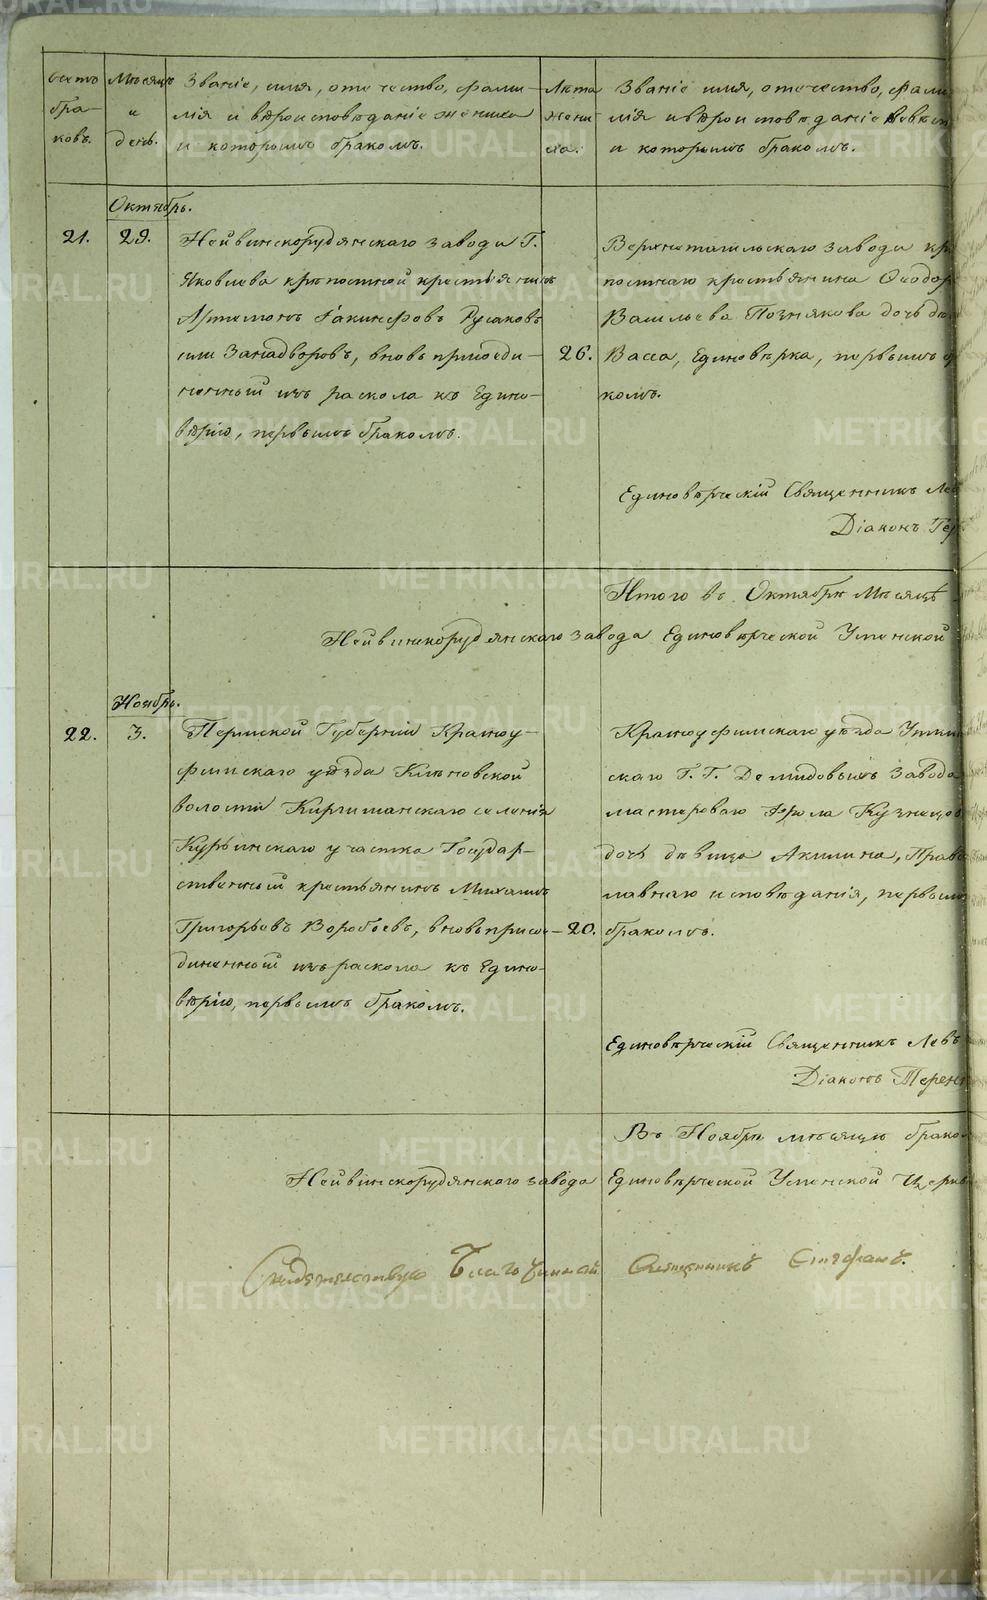 счетъ бра- ковъ.
Мѣсяцъ и день.
Званіе, имя, отечество, фами-
лія и вѣроисповѣданіе жениха
и которымъ бракомъ.
Лѣта жени- ха.
Званіе имя, отечество, фами
лія и вѣроисповѣданіе невѣсты
и которымъ бракомъ.
Октябрь.
21. 29.
Нейвинскорудянскаго завода Г.
Яковлева крѣпостной крестьянинъ
Артамонъ Іакинфовъ Русаковъ
или Занадворовъ, вновь присоеди-
ненный изъ раскола къ Едино-
вѣрію, первымъ бракомъ.
26.
Верхнетагильскаго завода кр
постнаго крестьянина Ѳеодор
Васильева Познякова дочь дѣ
Васса, Единовѣрка, первымъ бр
комъ.
Единовѣрческій Священникъ Лев
Діаконъ Тер
Итого въ Октябрѣ Мѣсяцѣ
Нейвинскорудянскаго завода Единовѣрческой Успенской
Ноябрь.
22. 3.
Пермской Губерніи Красноу-
фимскаго уѣзда Кленовской
волости Киргишанскаго селенія
Курьинскаго участка Государ-
ственный крестьянинъ Михаилъ
Григорьевъ Воробьевъ, вновь присое-
диненный изъ раскола къ Едино-
вѣрію, первымъ бракомъ.
20.
Красноуфимскаго уѣзда Уткин
скаго Г.Г. Демидовыхъ завода
мастероваго Фрола Кузнецов
дочь дѣвица Акилина, Право
славнаго исповѣданія, первымъ
бракомъ.
Единовѣрческій Священникъ Левъ
Діаконъ Терен
Въ Ноябрѣ мѣсяцѣ брако
Нейвинскорудянскаго завода Единовѣрческой Успенской Церкв
Свидѣтельствую Благочинный Священникъ Стефанъ.
METRIKI.GASO-URAL.RU